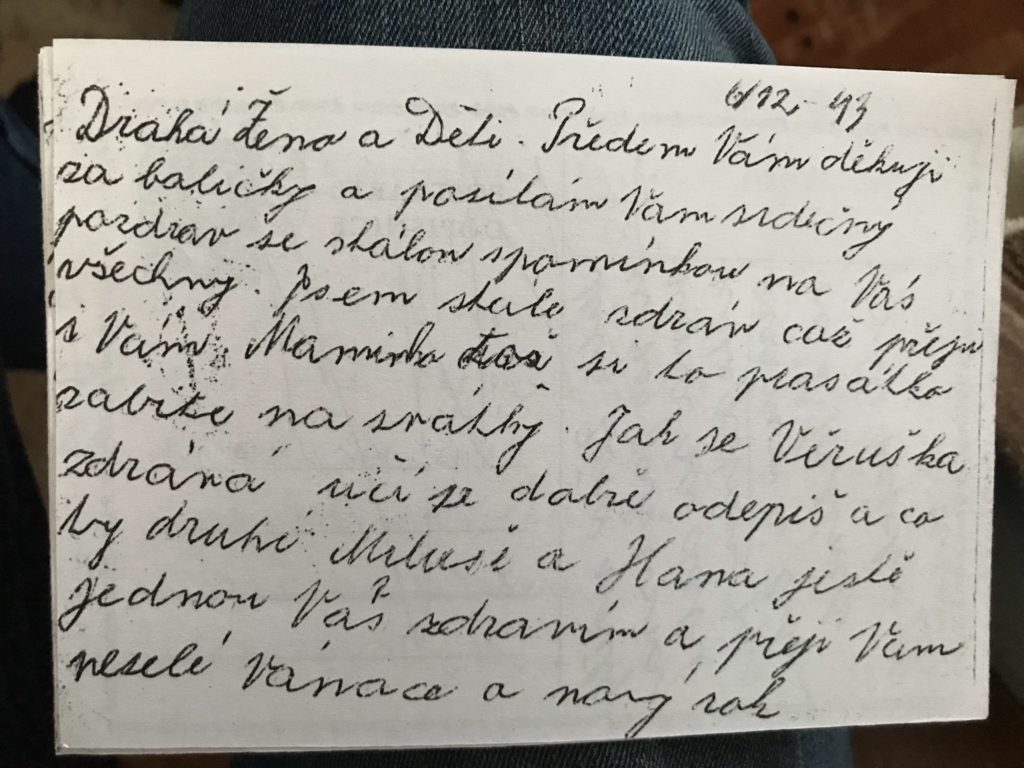 6/12. 43
Drahá Ženo a Děti. Předem Vám děkuji
za baličky a posílám Vám srdečný
pozdrav se stálou spomínkou na Vás
všechny. Jsem stále zdráv což přeji
i Vám. Maminko si to prasátko
zabite na svátky. Jak se Věruška
zdráva učí se dobře odepiš a co
ty druhé Miluše a Hana ještě
jednou Váš zdravím a přeji Vam
veselé Vánoce a nový rok